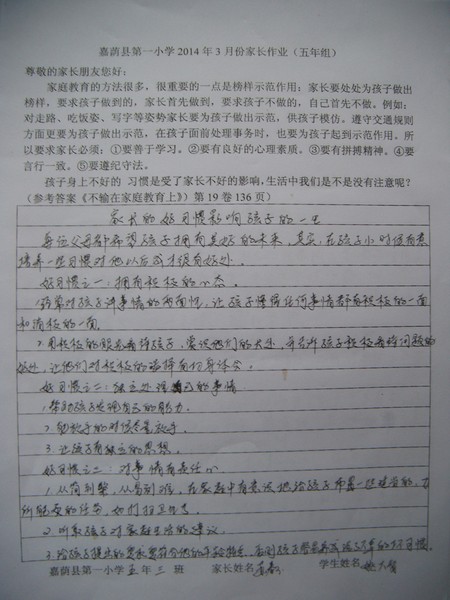 嘉荫县第一小学2014年3月份家长作业（五年组）
尊敬的家长朋友您好：
家庭教育的方法很多，很重要的一点是榜样示范作用；家长要处处为孩子做出
榜样，要求孩子做到的，家长首先做到，要求孩子不做的，自己首先不做。例如：
对走路、吃饭姿、写字等姿势家长要为孩子做出示范，供孩子模仿。遵守交通规则
方面更要为孩子做出示范，在孩子面前处理事务时，也要为孩子起到示范作用。所
以要求家长必须：①要善于学习。②要有良好的心理素质。③要有拼搏精神。④要
言行一致。⑤要遵纪守法。
孩子身上不好的 习惯是受了家长不好的影响，生活中我们是不是没有注意呢？
（参考答案《不输在家庭教育上》）第19卷136页）
家长的好习惯影响孩子的一生
每位父母都希望孩子拥有美好的未来，其实，在孩子小时候有意
培养一些习惯对他以后成才很有好处。
好习惯之一：拥有积极的心态。
1.经常对孩子讲事情的两面性，让孩子懂得任何事情都有积极的一面
和消极的一面。
2.用积极的眼光看待孩子，赏识他们的长处，并告诉孩子积极看待问题的
好处，让他们对积极的选择有切身体会。
好习惯之二：独立处理自己的事情
1.帮助孩子发现自己的能力。
2.能放手的时候尽量放手。
3.让孩子有独立的思想。
好习惯之二：对事情有责任心
1.从简到繁，从易到难，在家庭中有意识地给孩子布置一些建设的，力
所能及的任务，如打扫卫生。
2.听取孩子对家庭生活的建议。
3.给孩子提出的要求要符合他的年龄特点，否则孩子
嘉荫县第一小学五年三班 家长姓名 学生姓名